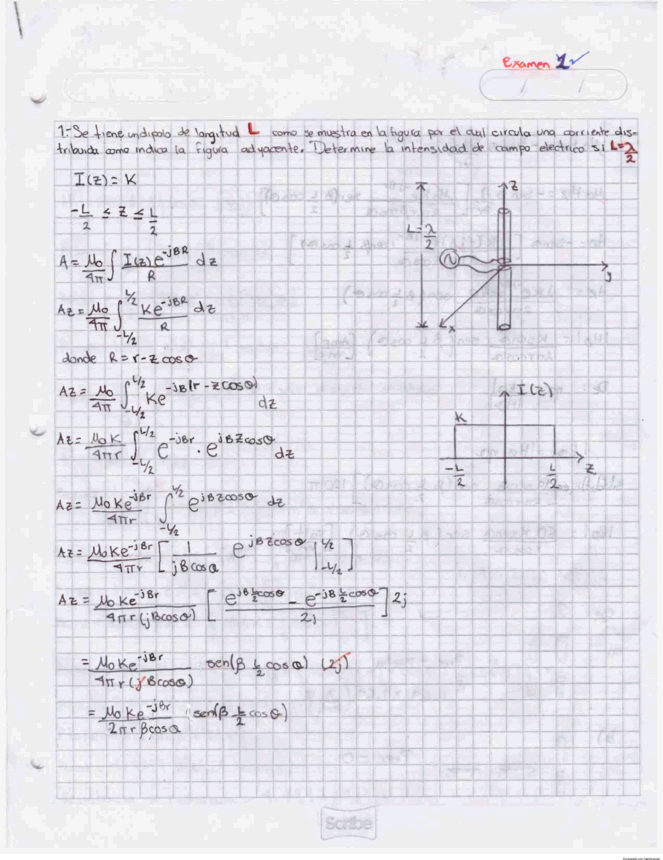 Examen 1
1.- Se tiene un dipolo de longitud L como se muestra en la figura por el cual circula una corriente dis-
tribuida como indica la figura adyacente. Determine la intensidad de campo electrico si L=λ/2
I(z) = K
-L/2 ≤ z ≤ L/2
A = μo/4π ∫ I(z)e^-jBR / R dz
Az = μo/4π ∫_-L/2^L/2 Ke^-jBR / R dz
donde R = r - z cos θ
Az = μo/4π ∫_-L/2^L/2 Ke^-jB(r - zcosθ) dz
Az = μo K/4πr ∫_-L/2^L/2 e^-jBr · e^jBzcosθ dz
Az = μo Ke^-jBr/4πr ∫_-L/2^L/2 e^jBzcosθ dz
Az = μo Ke^-jBr/4πr [ 1/jBcosθ e^jBzcosθ |_-L/2^L/2 ]
Az = μo Ke^-jBr/4πr(jBcosθ) [ e^jB L/2 cosθ - e^-jB L/2 cosθ / 2j ] 2j
= μo Ke^-jBr/4πr(jBcosθ) sen(β L/2 cosθ) (2j)
= μo Ke^-jBr/2πrβcosθ sen(β L/2 cosθ)
z
L=λ/2
y
x
I(z)
K
-L/2
L/2
z
Scribe